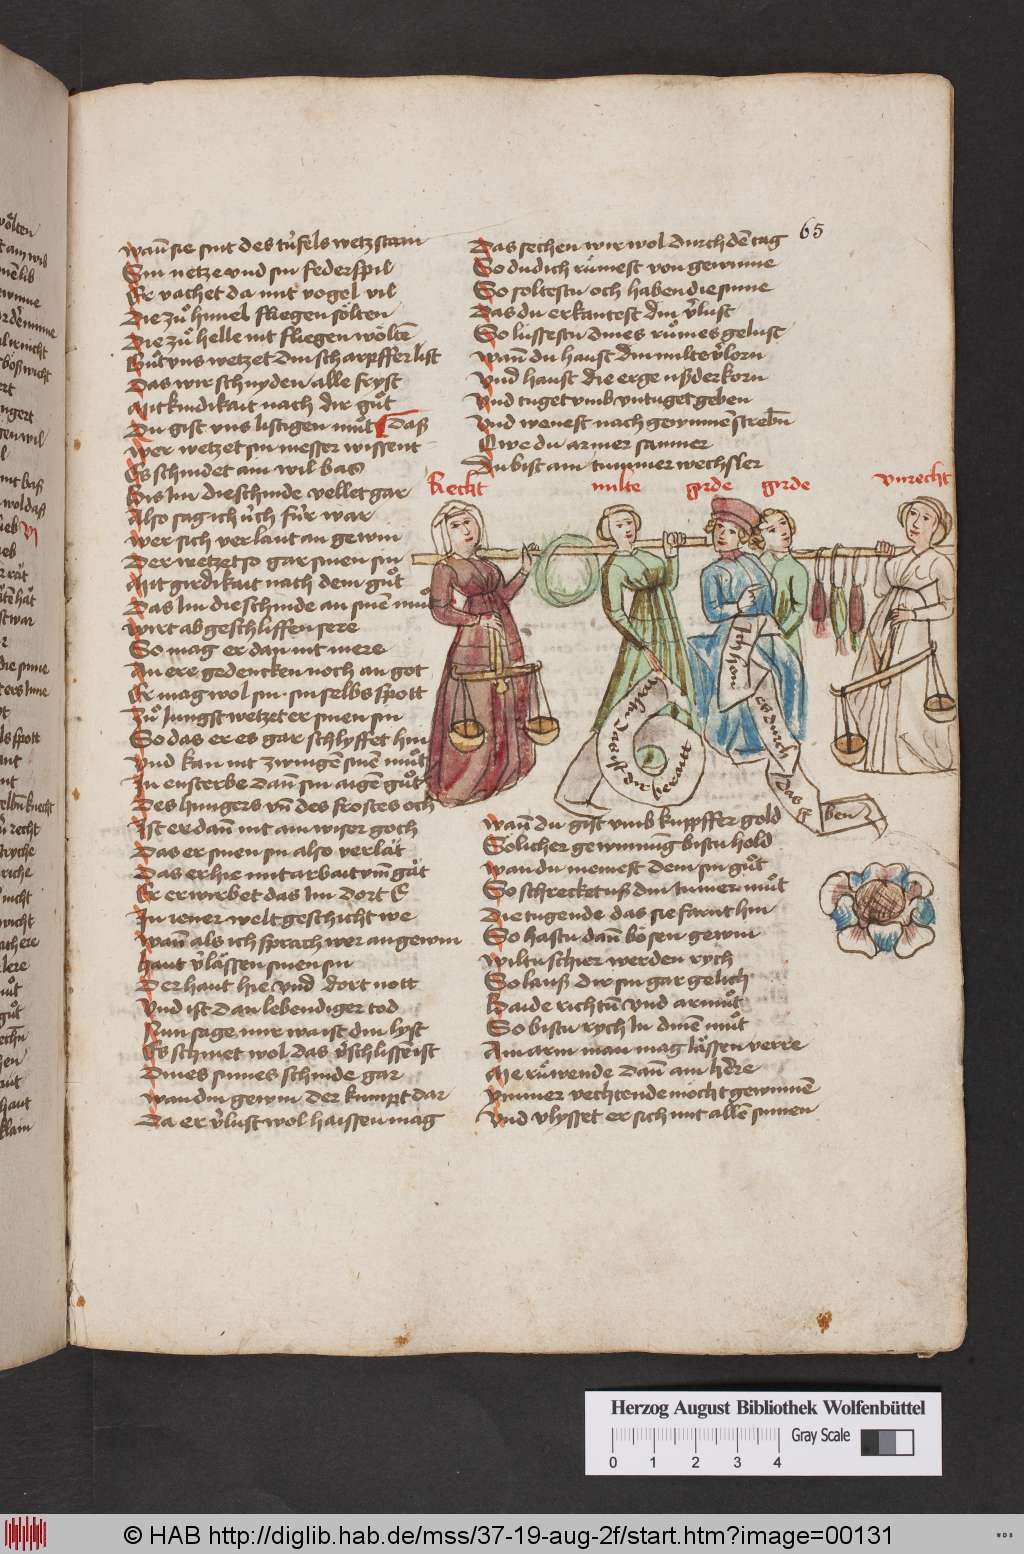 65
wañ sie sint des tüfels wetzstain
Sin netze vnd sin federspil
Er vachet da mit vogel vil
Die zuͦ himel fliegen sölten
Die zuͦ helle nit fliegen wölten
vns wetzet din scharpffer list
Das wir schnyden alle fryst
Mit kindikait nach dir guͦt
Du gist vns listigen muͦt Das
wer wetzet sin messer wissent
Es schindet am wil bas
Bis Im die schinde vellet gar
Also sag ich üch für war
wer sich verlaut an gewin
Der wetzet so gar sinen sin
Mit girdikait nach dem guͦt
Das Im die schinde an sinem muͦt
wirt abgeschliffen sere
So mag er dan nit mere
An ere gedencken noch an got
Er mag wol sin sin selbs spott
Zuͦ Jungst wetzet er sinen sin
So das er es gar schlyffet hin
Vnd kan nit zwingen sinen muͦt
In ensterbe dañ sin aigen guͦt
Des hungers vñ des frostes och
Ist er dañ nit am wiser goch
Das er sinen sin also verlät
Das er hie mit arbait vm̄ gät
Er erwirbet das Im dort E
In iener welt geschicht we
wañ als ich sprach wer an gewin
haut v̾lässen sinen sin
Der haut hie vnd dort nott
Vnd ist dan lebendiger tod
Nun sage mir wa ist din lyst
Es schinet wol das v̾schlissen ist
Dines sinnes schinde gar
wan din gewin der kumpt dar
Da er v̾lust wol haissen mag
Das sechen wir wol durch dē tag
So du dich rümest von gewinne
So soltestu och haben die sinne
Das du erkantest din v̾lust
So lüssestu dines ruͦmes gelust
wañ du haust din milte v̾lorn
Vnd haust die erge vß derkorn
Vnd tuget vmb vntuget geben
Vnd wenest nach gewinne streben
Owe du armer sammer
Du bist am tummer wechsler
Recht
milte
girde
girde
vnrecht
Ich hon
es durch
das
geben
Das ist dir berait
wañ du gist vmb kupffer gold
Solicher gewinnung bistu hold
wan du meinest dem sin guͦt
So schrecket vß din tumer muͦt
Die tugende das sie farnt hin
So hastu dañ bösen gewin
wiltu schier werden rych
So lauß dir sin gar gelich
Baide richtuͦ vnd armuͦt
So bistu rych In dinē muͦt
Am arm man mag lässen verre
Me rüwende dañ am herre
ymmer vechtende möcht gewinnen
Vnd vlysset er sich mit allē sinnen
Herzog August Bibliothek Wolfenbüttel
Gray Scale
0 1 2 3 4
© HAB http://diglib.hab.de/mss/37-19-aug-2f/start.htm?image=00131